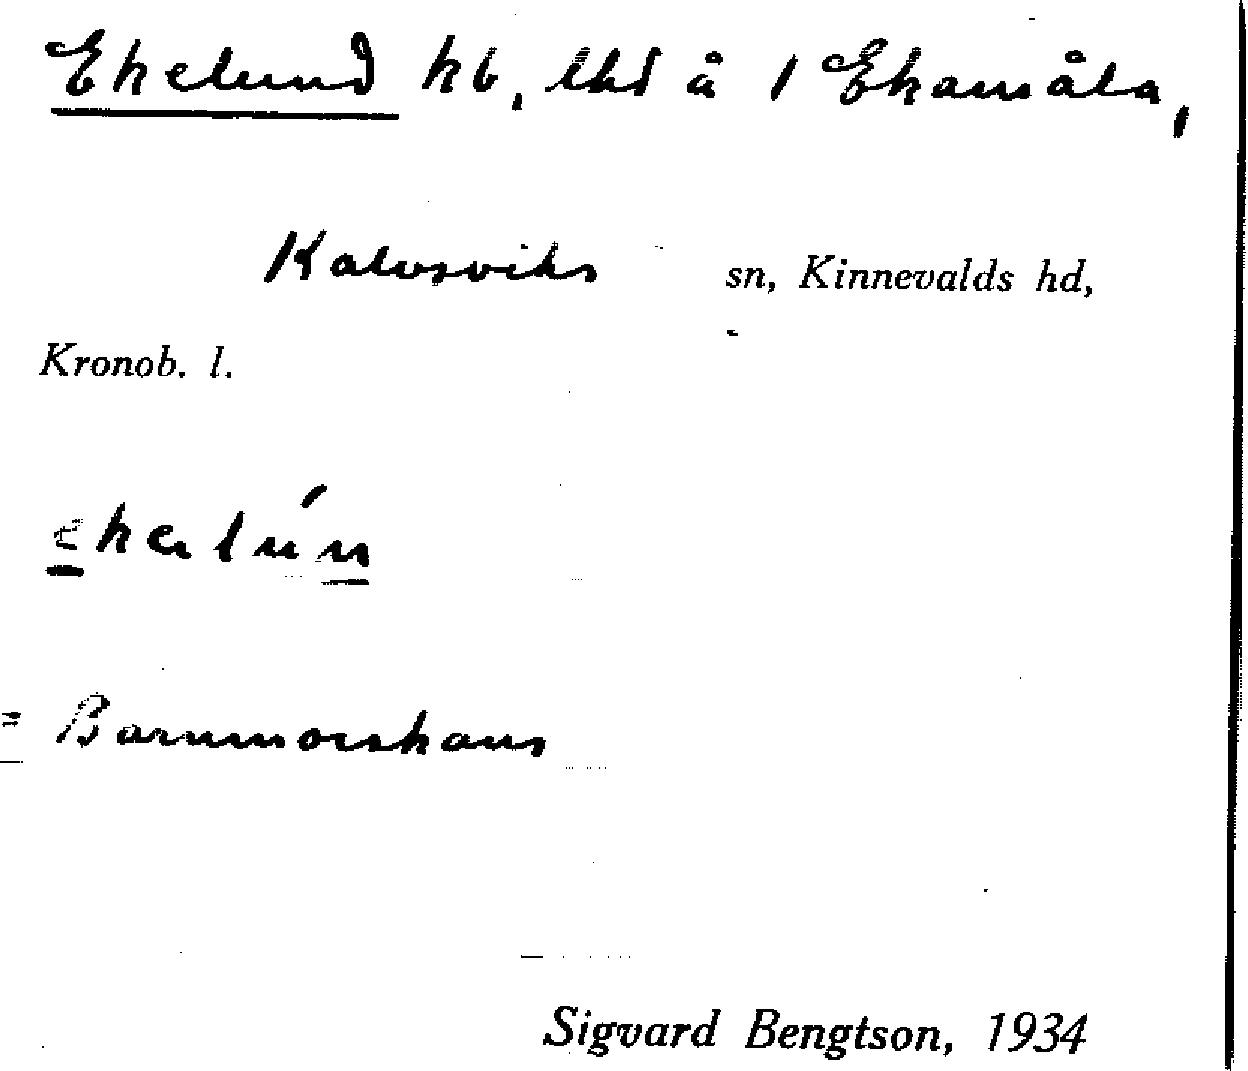 Ekelund hb, lht å 1 Ekamåla,
Kalvsviks sn, Kinnevalds hd,
Kronob. l.
ekalún
= Barnmorskans
Sigvard Bengtson, 1934